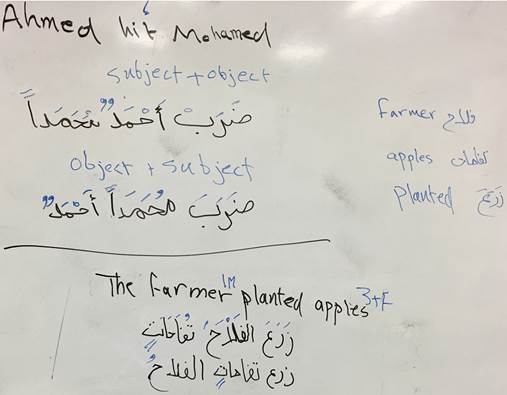 Ahmed hit Mohamed
subject + object
ضَرَبْ أَحْمَدٌ مُحَمَداً
object + subject
ضَرَبَ مُحَمَداً أَحْمَدٌ
farmer فلاح
apples تفاحات
planted زَرَعَ
The farmer 1M planted apples 3+F
زَرَعَ الفَلَاْحُ تُفَاحَاتٍ
زرع تفاحاتٍ الفلاحُ